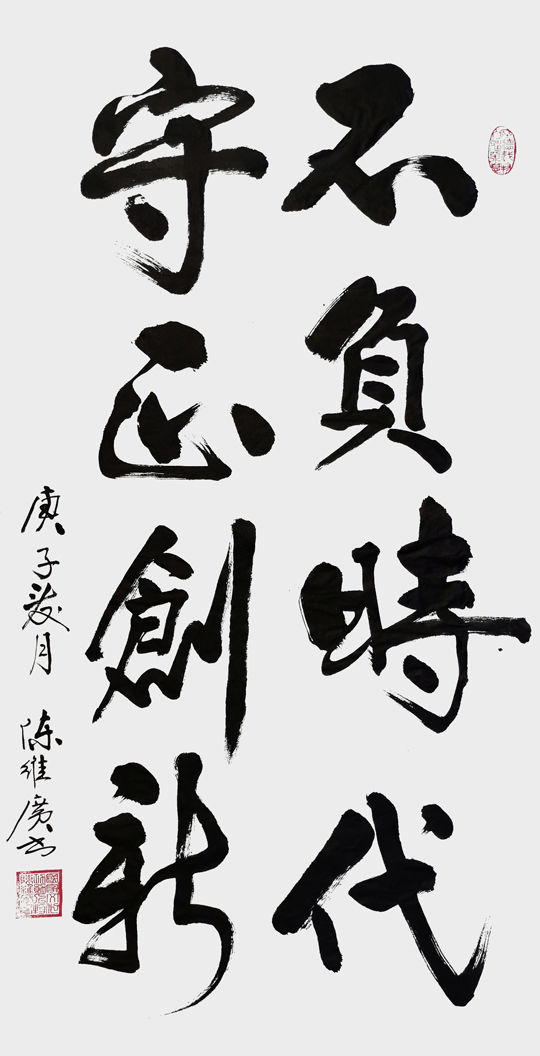 不負時代
守正創新
庚子荔月 陈維廣书